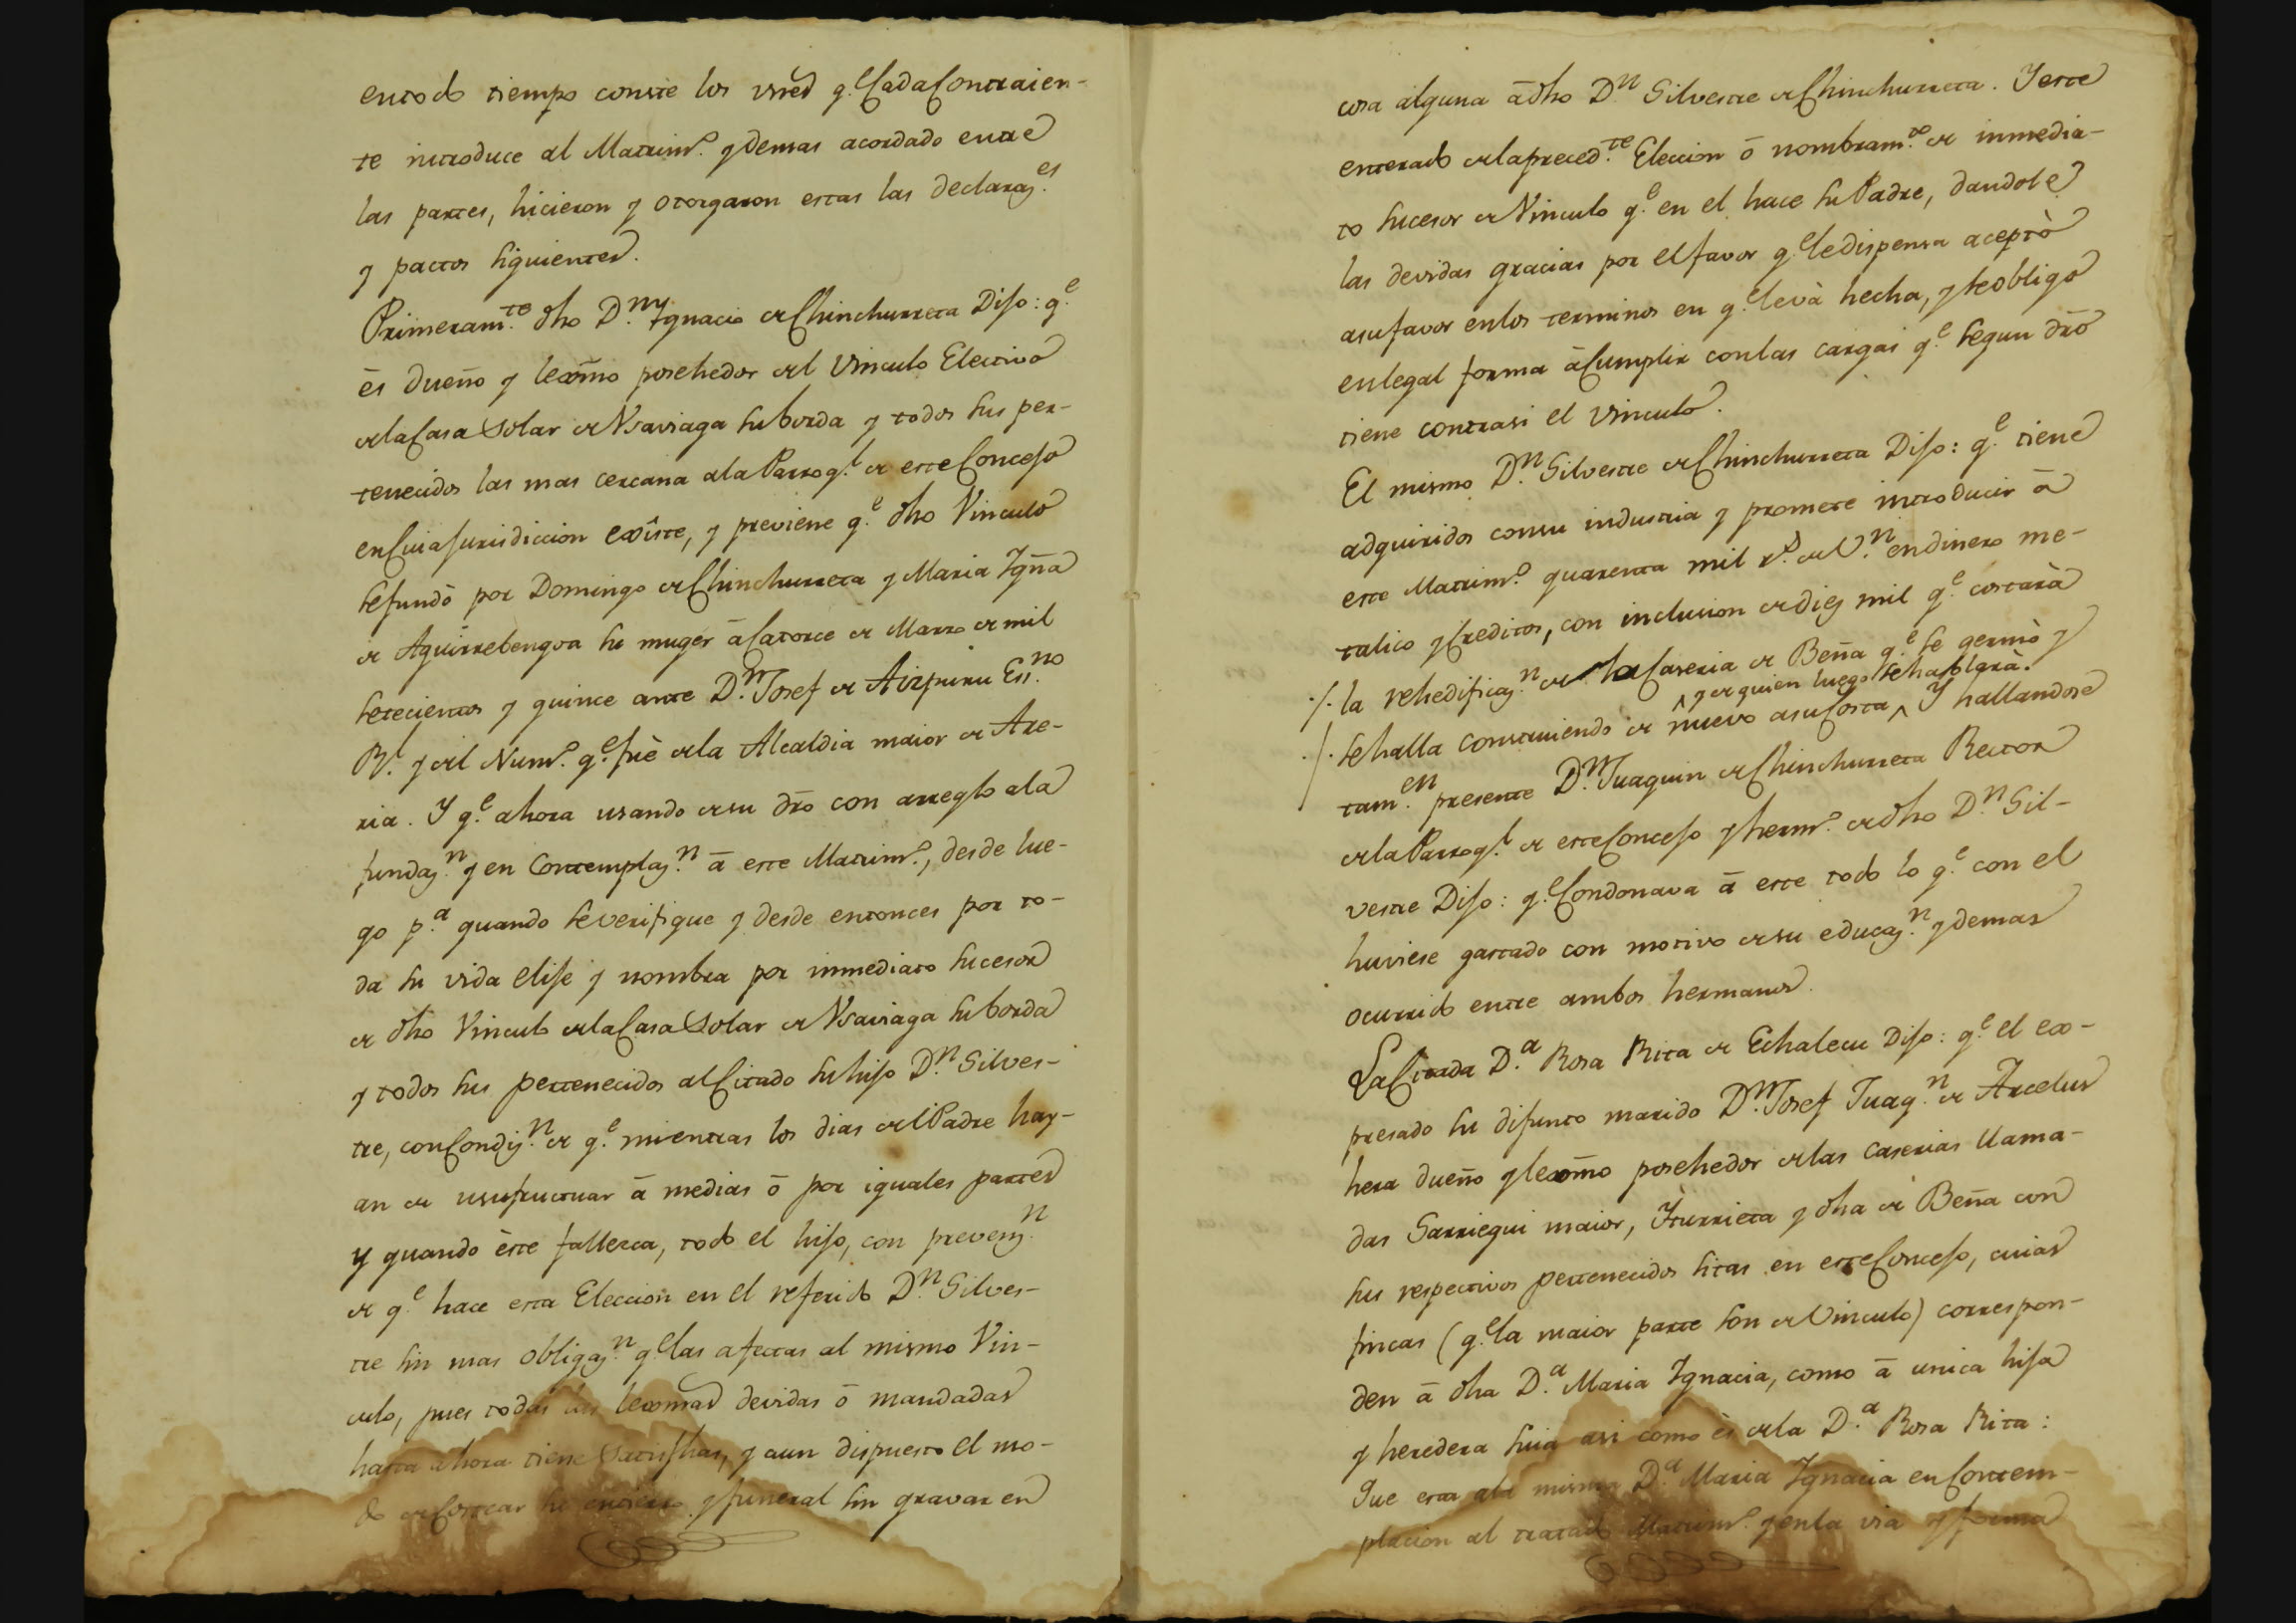 entodo tiempo conste los vnes q.e Cada Contraien-
te introduce al Matrim.o y demas acordado entre
las partes, hicieron y otorgaron estas las declaraz.es
y pactos siguientes.
Primeram.te dho D.n Ygnacio de Chinchurreta Dijo: q.e
ès dueño y lexmo. posehedor del Vinculo Electivo
dela Casa Solar de Vsaviaga suborda y todos sus per-
tenecidos las mas cercana ala Parroq.l de este Concejo
en Cuia Jurisdiccion exîste, y previene q.e dho Vinculo
sefundò por Domingo de Chinchurreta y Maria Ygña
de Aguirrebengoa su muger à Catorce de Marzo de mil
setecientos y quince ante D.n Josef de Aizpuru Ess.no
R.l y del Num.o q.e fuè dela Alcaldia maior de Are-
ria. Y q.e ahora usando desu dro con arreglo ala
fundaz.n y en Contemplaz.n à este Matrim.o, desde lue-
go p.a quando severifique y desde entonces por to-
da su vida elije y nombra por inmediato sucesor
de dho Vinculo dela Casa Solar de Vsaviaga suborda
y todos sus pertenecidos al Citado su hijo D.n Silves-
tre, con Condiz.n de q.e mientras los dias del Padre hay-
an de usufructuar à medias ò por iguales partes
y quando èste fallezca, todo el hijo, con prevenz.n
de q.e hace esta Eleccion en el referido D.n Silves-
tre sin mas obligaz.n q.e las afectas al mismo Vin-
culo, pues todas las lexmas devidas ò mandadas
hasta ahora tiene satisfhas, y aun dispuesto el mo-
do de Costear su entierro y funeral sin gravar en
cosa alguna à dho D.n Silvestre de Chinchurreta. Y este
enterado dela preced.te Eleccion ò nombram.to de inmedia-
to sucesor de Vinculo q.e en el hace su Padre, dandole
las devidas gracias por el favor q.e le dispensa aceptò
asufavor enlos terminos en q.e levà hecha, y seobligò
enlegal forma à Cumplir conlas cargas q.e segun dro
tiene contrasi el vinculo.
El mismo D.n Silvestre de Chinchurreta Dijo: q.e tiene
adquiridos consu industria y promete introducir à
este Matrim.o quarenta mil r.s de V.n endinero me-
talico y Creditos, con inclusion de diez mil q.e costarà
·/· la rehedificaz.n de la Caseria de Beña q.e se germò y
y de quien luego sehablarà.
·/· sehalla construiendo de nuevo asu Costa ^ Y hallandose
tam.en presente D.n Juaquin de Chinchurreta Rector
dela Parroq.l de este Concejo y herm.o de dho D.n Sil-
vestre Dijo: q.e Condonava à este todo lo q.e con el
huviese gastado con motivo desu educaz.n y demas
ocurrido entre ambos hermanos.
La Citada D.a Rosa Rita de Echalecu Dijo: q.e el ex-
presado su difunto marido D.n Josef Juaq.n de Arcelus
hera dueño y lexmo posehedor delas caserias llama-
das Sarriegui maior, Yturrieta y dha de Beña con
sus respectivos pertenecidos sitas en este Concejo, cuias
fincas (q.e la maior parte son de Vinculo) correspon-
den à dha D.a Maria Ygnacia, como à unica hija
y heredera suia asi como ès dela D.a Rosa Rita:
Que esta ala misma D.a Maria Ygnacia en Contem-
placion al tratado Matrim.o y enla via y forma